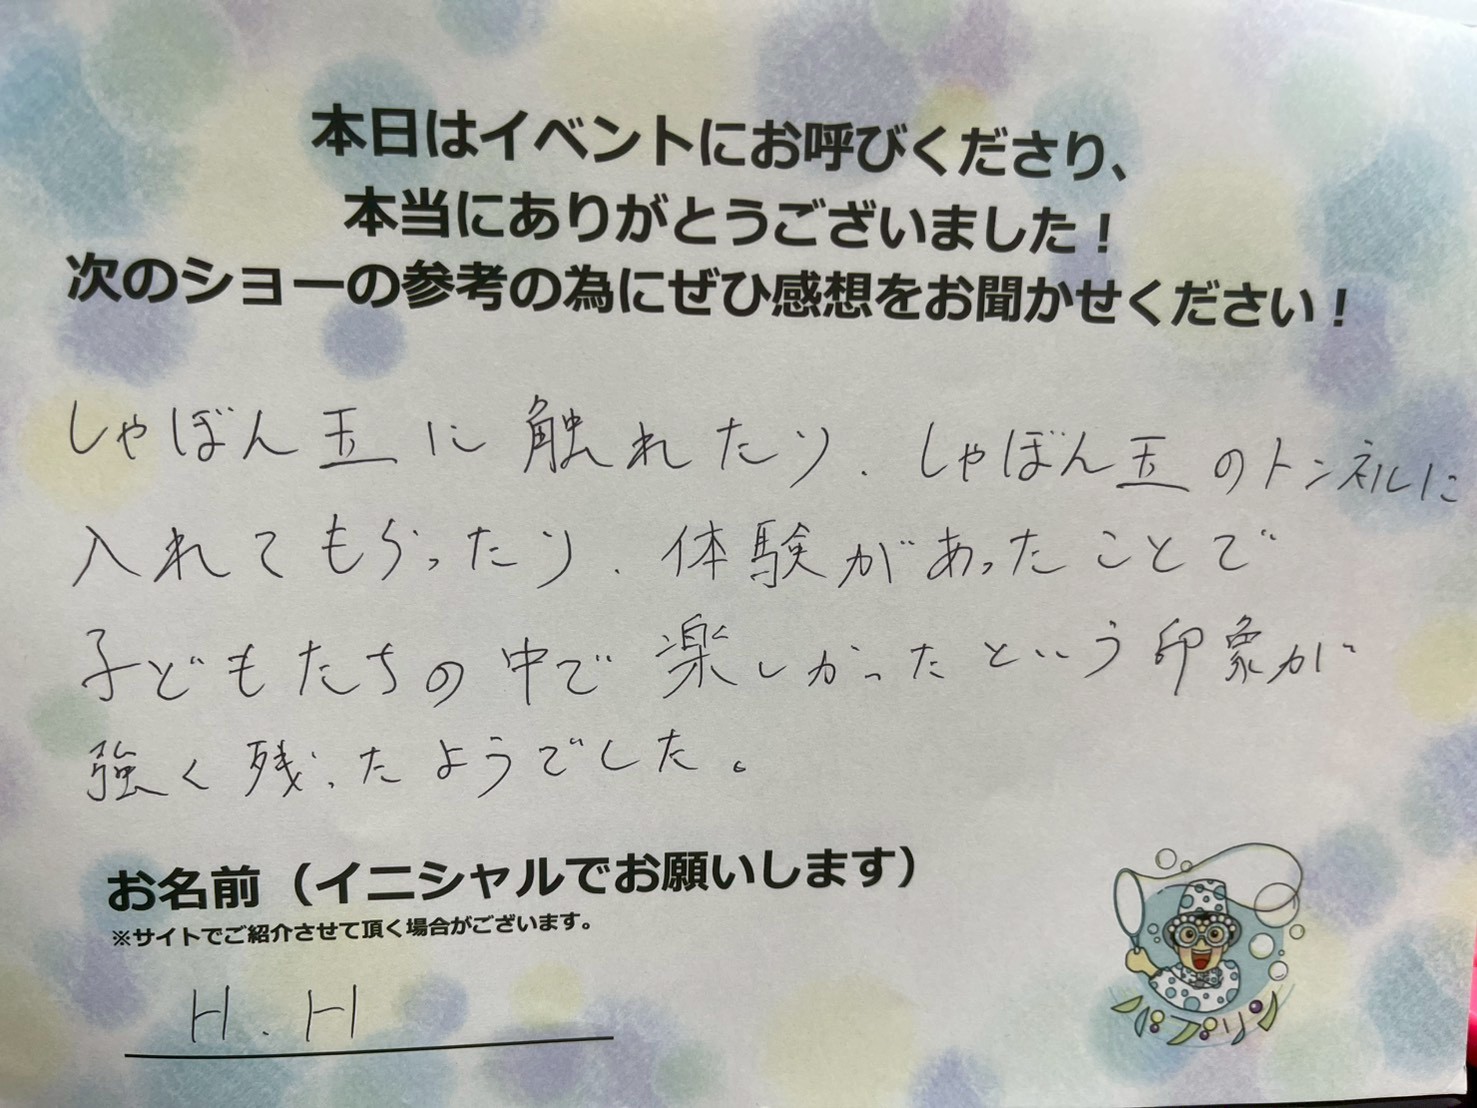 本日はイベントにお呼びくださり、
本当にありがとうございました！
次のショーの参考の為にぜひ感想をお聞かせください！
しゃぼん玉に触れたり、しゃぼん玉のトンネルに
入れてもらったり、体験があったことで
子どもたちの中で楽しかったという印象が
強く残ったようでした。
お名前（イニシャルでお願いします）
※サイトでご紹介させて頂く場合がございます。
H.H
バブリン